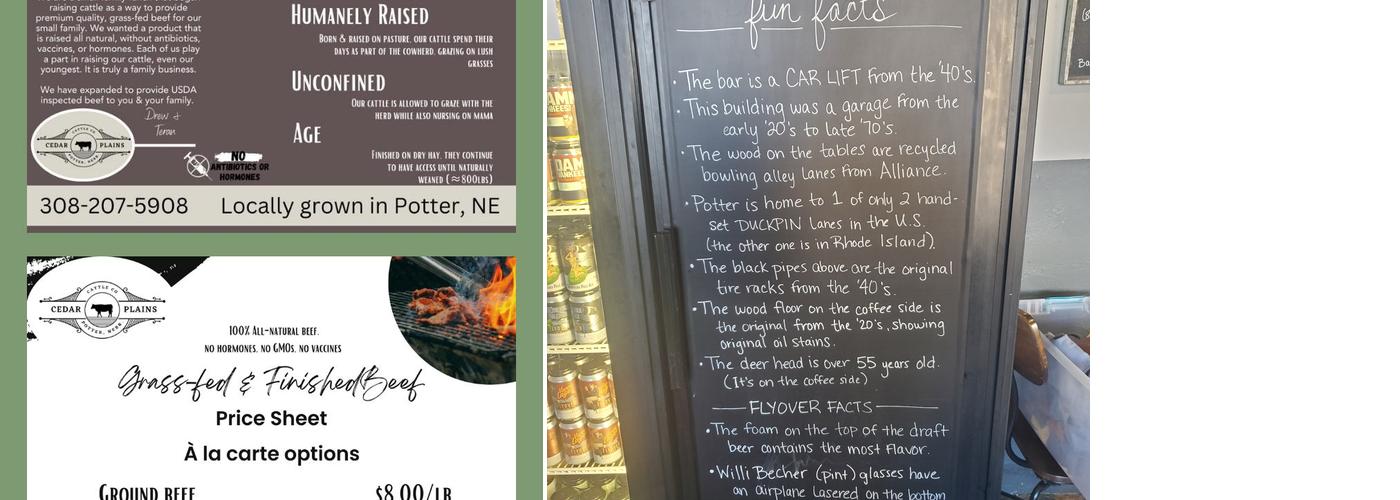 raising cattle as a way to provide
premium quality, grass-fed beef for our
small family. We wanted a product that
is raised all natural, without antibiotics,
vaccines, or hormones. Each of us play
a part in raising our cattle, even our
youngest. It is truly a family business.
We have expanded to provide USDA
inspected beef to you & your family.
Drew &
Teran
CATTLE CO
CEDAR PLAINS
POTTER, NEBR
NO
ANTIBIOTICS OR
HORMONES
HUMANELY RAISED
BORN & RAISED ON PASTURE, OUR CATTLE SPEND THEIR
DAYS AS PART OF THE COWHERD, GRAZING ON LUSH
GRASSES
UNCONFINED
OUR CATTLE IS ALLOWED TO GRAZE WITH THE
HERD WHILE ALSO NURSING ON MAMA
AGE
FINISHED ON DRY HAY, THEY CONTINUE
TO HAVE ACCESS UNTIL NATURALLY
WEANED (≈800LBS)
308-207-5908 Locally grown in Potter, NE
CATTLE CO
CEDAR PLAINS
POTTER, NEBR
100% ALL-NATURAL BEEF.
NO HORMONES, NO GMOS, NO VACCINES
Grass-fed & Finished Beef
Price Sheet
À la carte options
GROUND BEEF $8.00/LB
fun facts
• The bar is a CAR LIFT from the '40's.
• This building was a garage from the
early '20's to late '70's.
• The wood on the tables are recycled
bowling alley lanes from Alliance.
• Potter is home to 1 of only 2 hand-
set DUCKPIN lanes in the U.S.
(the other one is in Rhode Island).
• The black pipes above are the original
tire racks from the '40's.
• The wood floor on the coffee side is
the original from the '20's, showing
original oil stains.
• The deer head is over 55 years old.
(It's on the coffee side)
FLYOVER FACTS
• The foam on the top of the draft
beer contains the most flavor.
• Willi Becher (pint) glasses have
an airplane lasered on the bottom